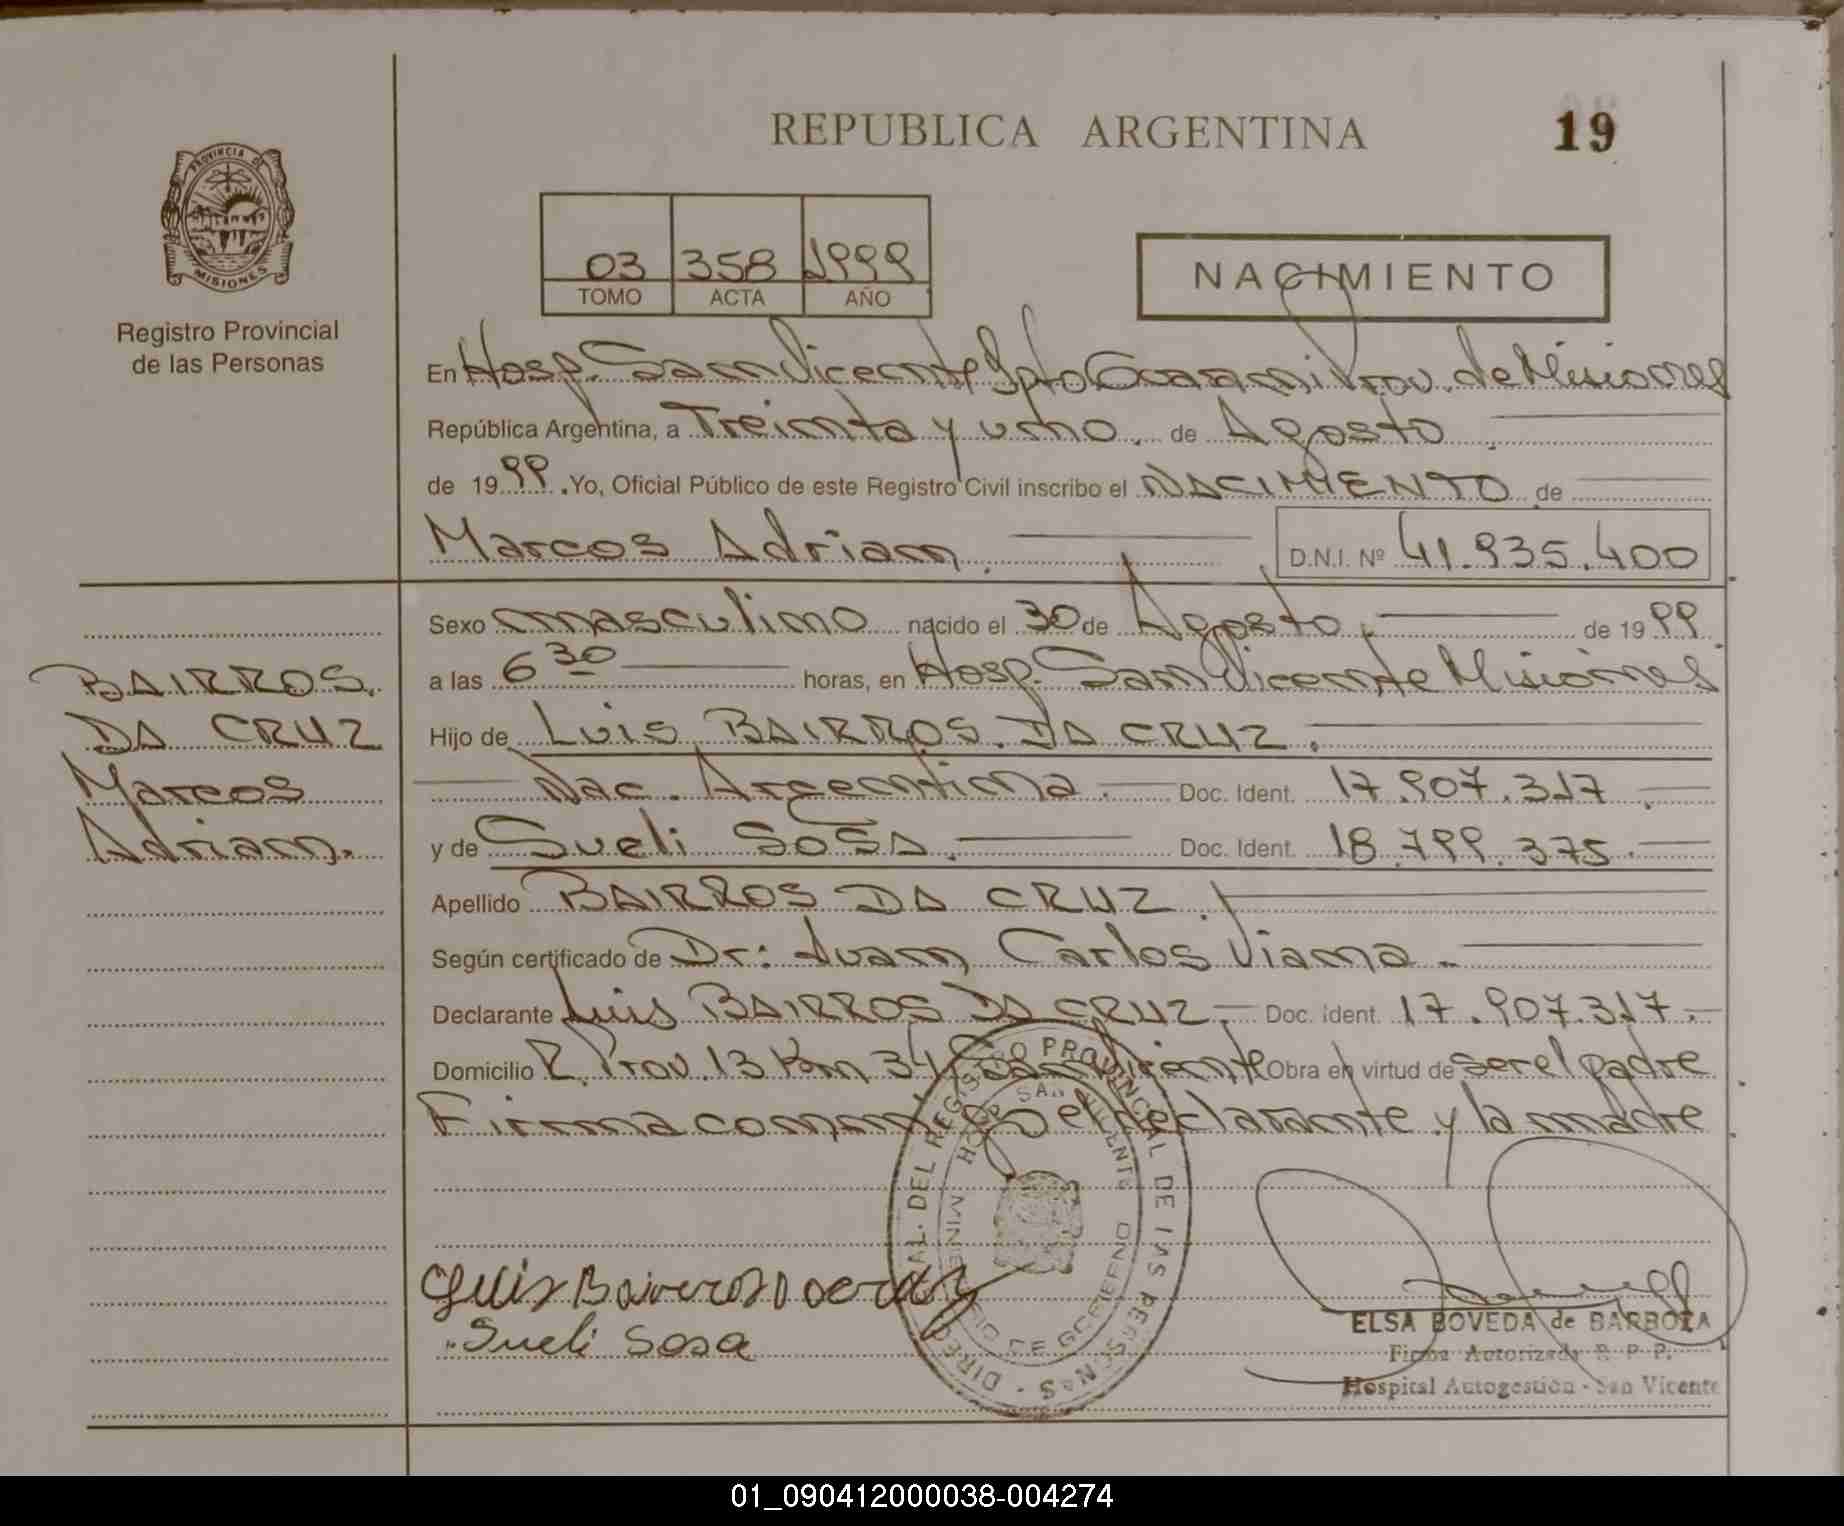 REPUBLICA ARGENTINA
19
PROVINCIA DE
MISIONES
Registro Provincial
de las Personas
03 358 1999
TOMO ACTA AÑO
NACIMIENTO
En Hosp. San Vicente Dpto Guaraní Prov. de Misiones
República Argentina, a Treinta y uno. de Agosto
de 1999. Yo, Oficial Público de este Registro Civil inscribo el NACIMIENTO de
Marcos Adrian. D.N.I. Nº 41.935.400
Sexo masculino nacido el 30 de Agosto. de 1999.
a las 6 30 horas, en Hosp. San Vicente Misiones
Hijo de Luis BAIRROS. DA CRUZ.
Nac. Argentina. Doc. Ident. 17.907.317.
y de Sueli SOSA. Doc. Ident. 18.799.375.
Apellido BAIRROS DA CRUZ.
Según certificado de Dr: Juan Carlos Viana.
Declarante Luis BAIRROS DA CRUZ. Doc. Ident. 17.907.317.
Domicilio R. Prov. 13 Km 34 San Vicente Obra en virtud de ser el padre
Firma conmigo el declarante y la madre
BAIRROS.
DA CRUZ
Marcos
Adrian.
DIREC. DEL REGISTRO PROVINCIAL DE LAS PERSONAS
HOSP. SAN VICENTE
MINISTERIO DE GOBIERNO
Luis Bairros
Sueli Sosa
ELSA BOVEDA de BARBOZA
Firma Autorizada R. P. P.
Hospital Autogestión - San Vicente
01_090412000038-004274